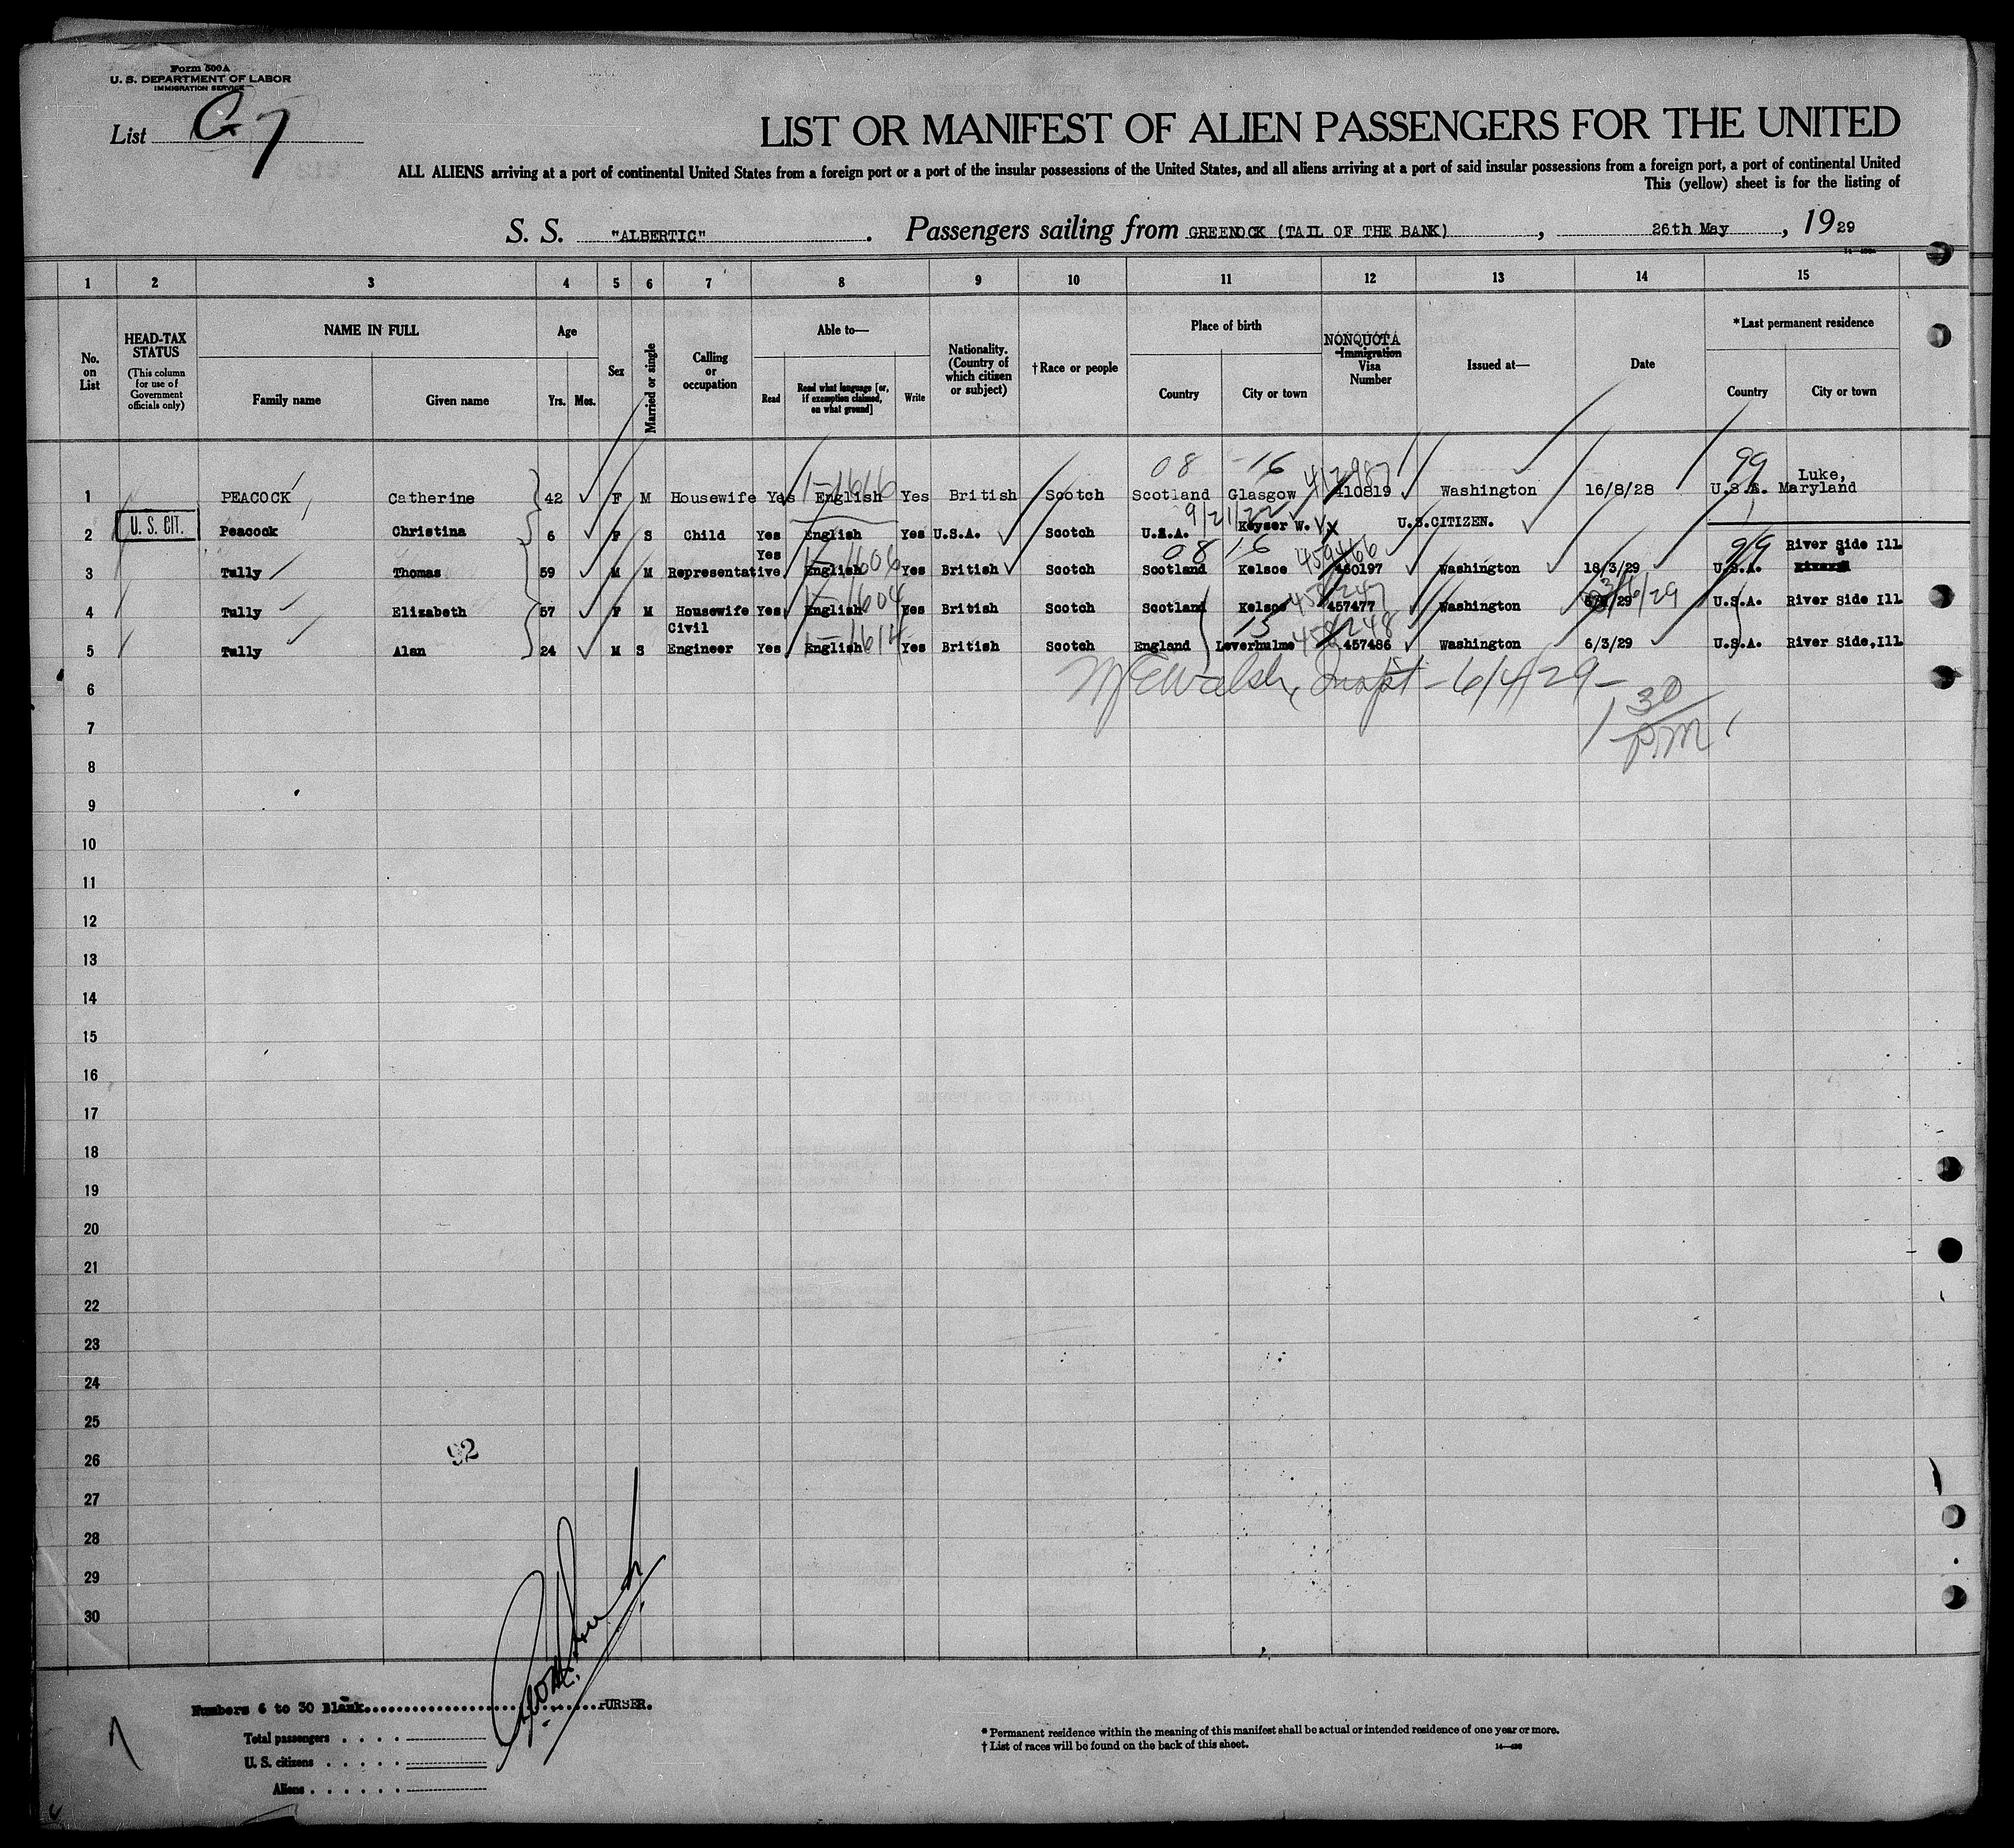 Form 500A
U. S. DEPARTMENT OF LABOR
IMMIGRATION SERVICE
List G 7
LIST OR MANIFEST OF ALIEN PASSENGERS FOR THE UNITED
ALL ALIENS arriving at a port of continental United States from a foreign port or a port of the insular possessions of the United States, and all aliens arriving at a port of said insular possessions from a foreign port, a port of continental United
This (yellow) sheet is for the listing of
S. S. "ALBERTIC". Passengers sailing from GREENOCK (TAIL OF THE BANK), 26th May, 1929
1 2 3 4 5 6 7 8 9 10 11 12 13 14 15
No. on List
HEAD-TAX STATUS
(This column for use of Government officials only)
NAME IN FULL
Family name Given name
Age
Yrs. Mos.
Sex
Married or single
Calling or occupation
Able to—
Read
Read what language [or, if exemption claimed, on what ground]
Write
Nationality. (Country of which citizen or subject)
†Race or people
Place of birth
Country City or town
NONQUOTA
Immigration Visa Number
Issued at—
Date
*Last permanent residence
Country City or town
08 -16 412987 99 Luke,
1 PEACOCK Catherine 42 F M Housewife Yes English Yes British Scotch Scotland Glasgow 410819 Washington 16/8/28 U.S.A. Maryland
9/21/22
2 U. S. CIT. Peacock Christina 6 F S Child Yes English Yes U.S.A. Scotch U.S.A. Keyser W. V U.S.CITIZEN.
Yes 08 16 459466 99 River Side Ill
3 Tully Thomas 59 M M Representative English Yes British Scotch Scotland Kelsoe 460197 Washington 18/3/29 U.S.A.
4 Tully Elizabeth 57 F M Housewife Yes English Yes British Scotch Scotland Kelsoe 458247 457477 Washington U.S.A. River Side Ill
Civil 15 458248
5 Tully Alan 24 M S Engineer Yes English Yes British Scotch England Leverhulme 457486 Washington 6/3/29 U.S.A. River Side,Ill
6 Walsh, - 6/4/29 -
1 30
7 P.M.
8
9
10
11
12
13
14
15
16
17
18
19
20
21
22
23
24
25
26
92
27
28
29
30
Numbers 6 to 30 Blank PURSER.
Total passengers
U. S. citizens
Aliens
* Permanent residence within the meaning of this manifest shall be actual or intended residence of one year or more.
† List of races will be found on the back of this sheet.